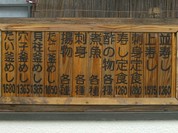 並寿し 1050
上寿し 1575
寿し定食 1260
刺身定食 1260
酢の物 各種
煮魚 各種
刺身 各種
焼物 各種
たこ釜めし 1050
貝柱釜めし
穴子釜めし
たい釜めし